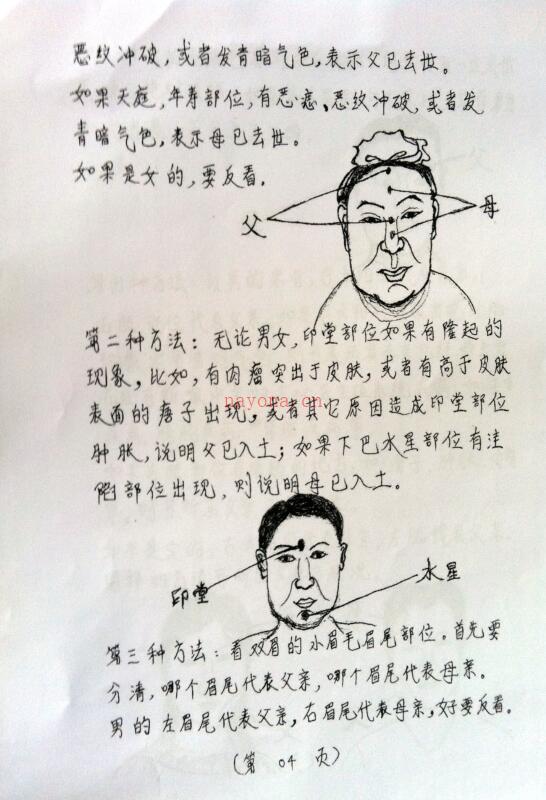 恶纹冲破，或者发青暗气色，表示父已去世。
如果天庭，年寿部位，有恶痣、恶纹冲破，或者发
青暗气色，表示母已去世。
如果是女的，要反看。
父
母
第二种方法：无论男女，印堂部位如果有隆起的
现象，比如，有肉瘤突出于皮肤，或者有高于皮肤
nayona.cn
表面的痞子出现，或者其它原因造成印堂部位
肿胀，说明父已入土；如果下巴水星部位有洼
陷部位出现，则说明母已入土。
印堂
水星
第三种方法：看双眉的小眉毛眉尾部位。首先要
分清，哪个眉尾代表父亲，哪个眉尾代表母亲。
男的左眉尾代表父亲，右眉尾代表母亲，女子要反看。
（第 04 页）